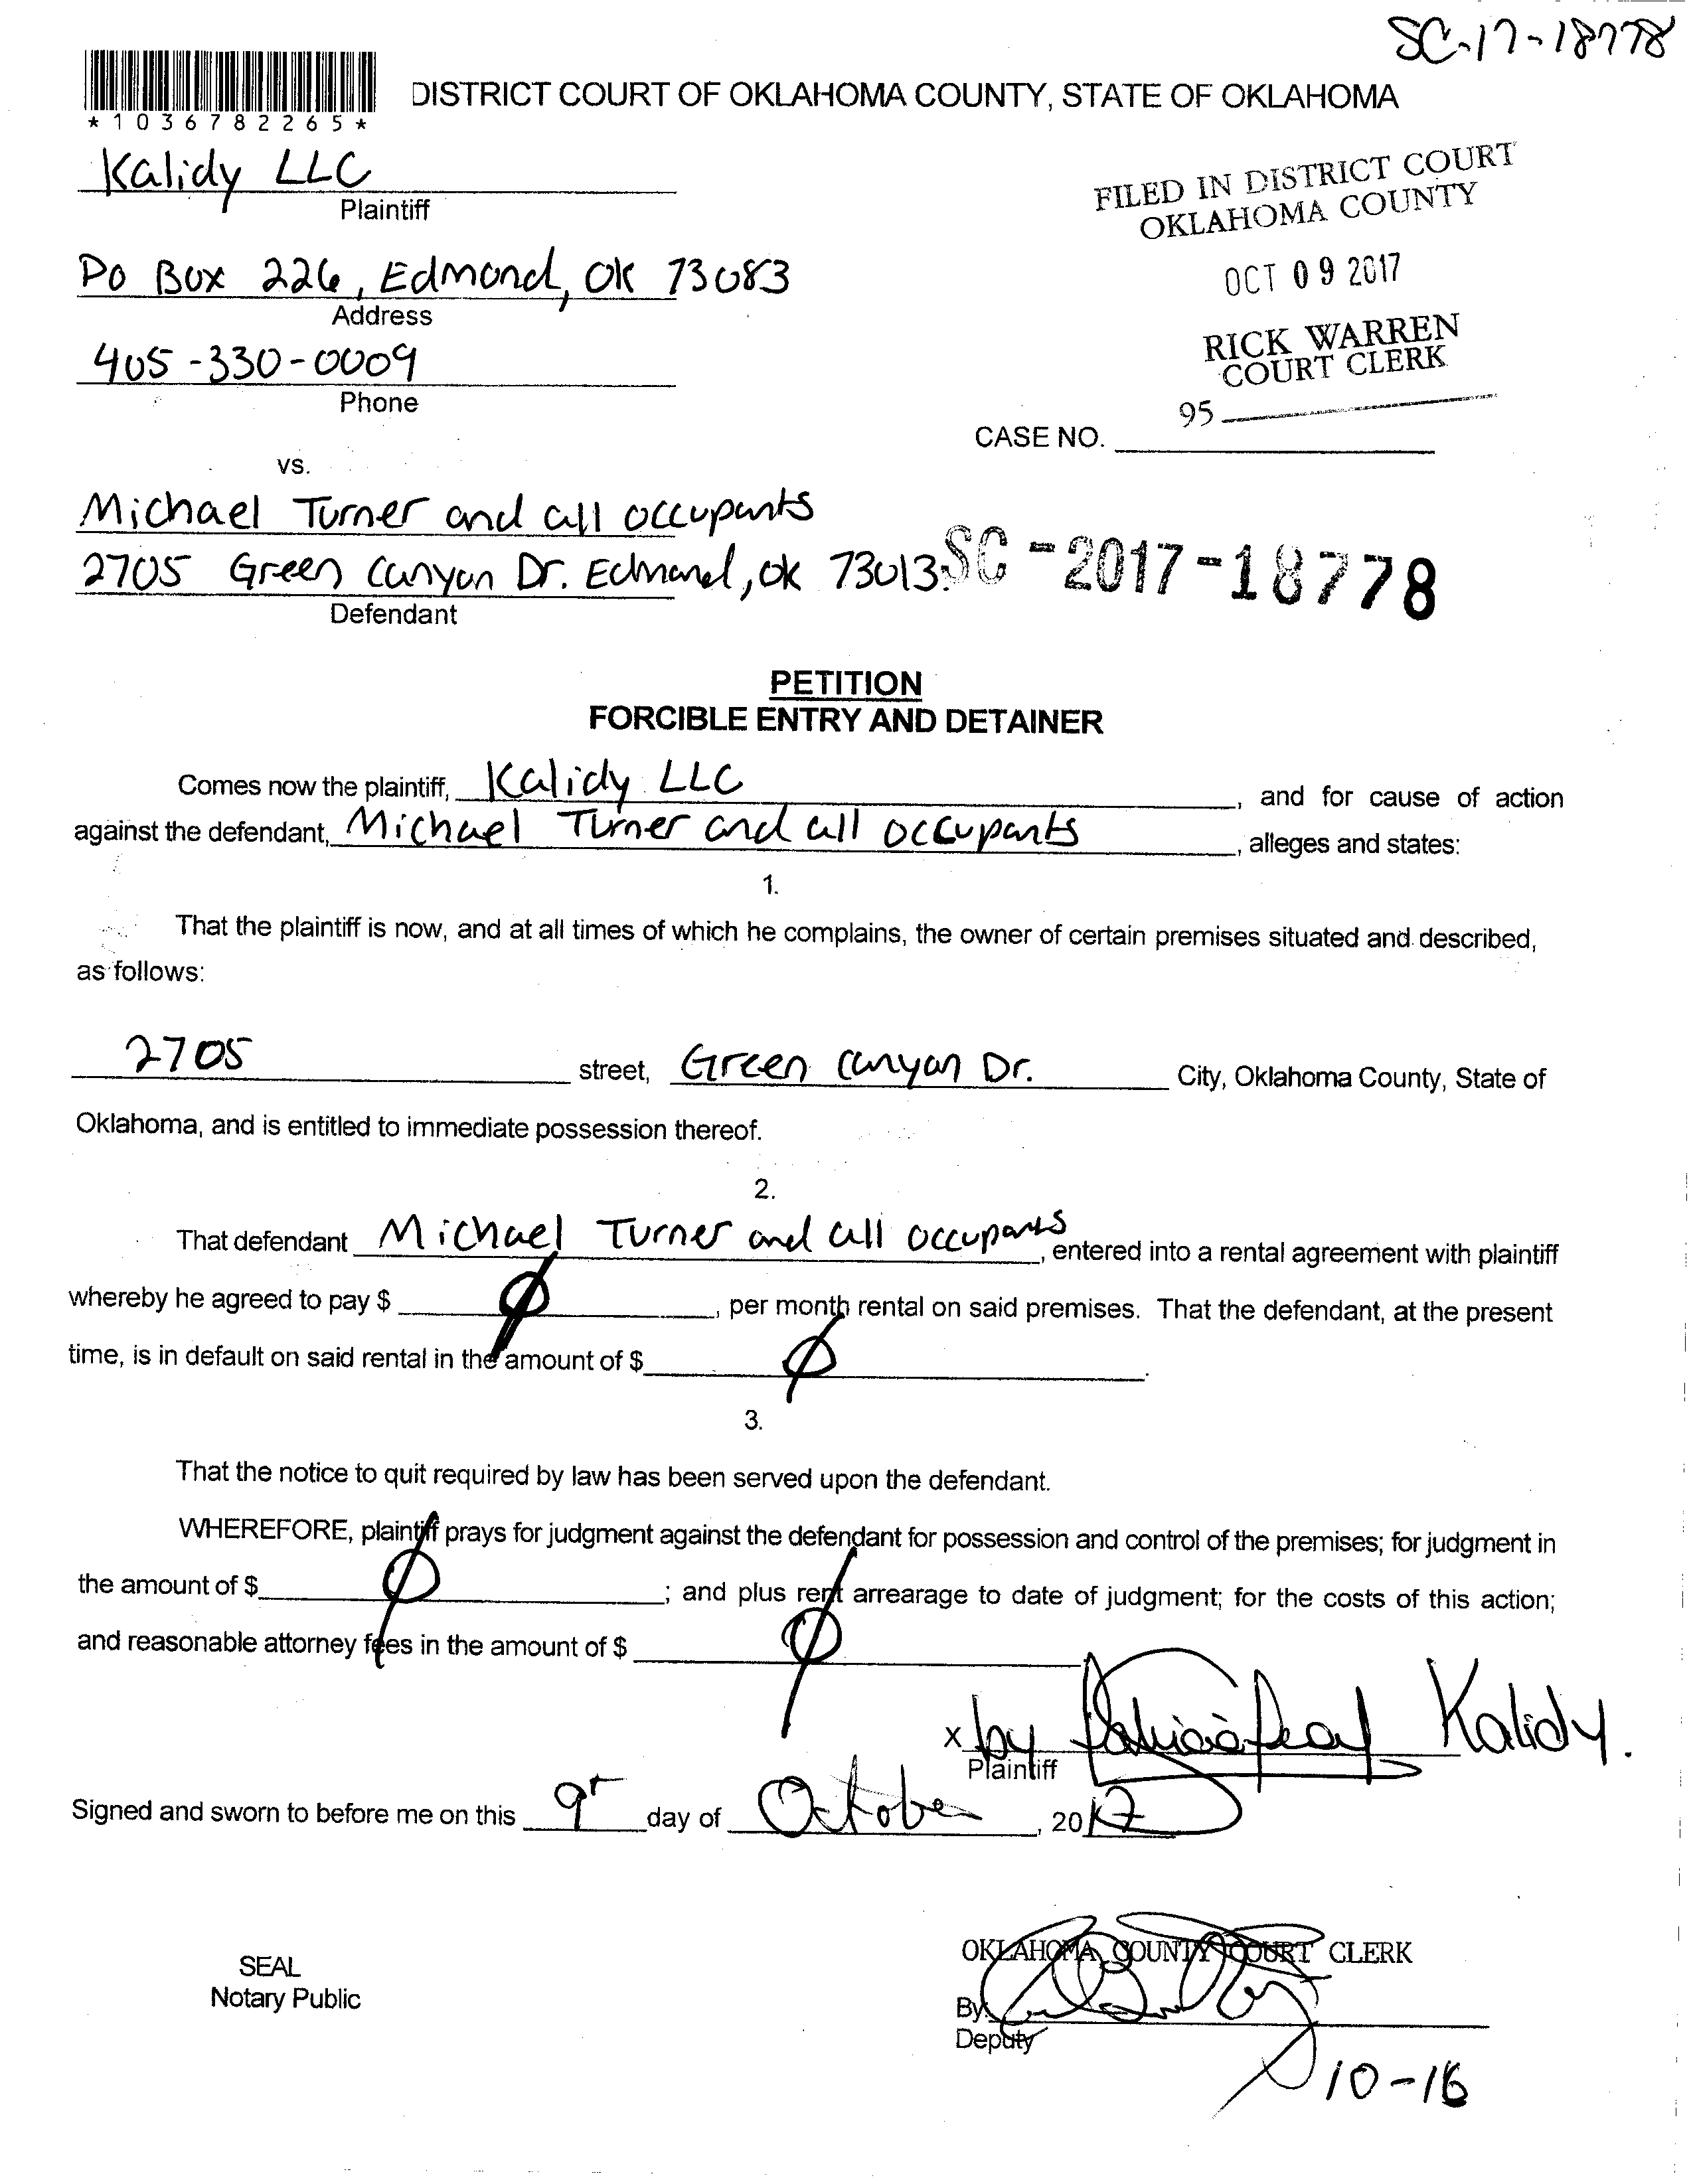 SC-17-18778
DISTRICT COURT OF OKLAHOMA COUNTY, STATE OF OKLAHOMA
*1036782265*
Kalidy LLC
Plaintiff
FILED IN DISTRICT COURT
OKLAHOMA COUNTY
PO Box 226, Edmond, OK 73083
Address
OCT 09 2017
405-330-0009
Phone
RICK WARREN
COURT CLERK
95
CASE NO.
vs.
Michael Turner and all occupants
2705 Green Canyon Dr. Edmond, OK 73013.
SC-2017-18778
Defendant
PETITION
FORCIBLE ENTRY AND DETAINER
Comes now the plaintiff, Kalidy LLC, and for cause of action
against the defendant, Michael Turner and all occupants, alleges and states:
1.
That the plaintiff is now, and at all times of which he complains, the owner of certain premises situated and described,
as follows:
2705 street, Green Canyon Dr. City, Oklahoma County, State of
Oklahoma, and is entitled to immediate possession thereof.
2.
That defendant Michael Turner and all occupants, entered into a rental agreement with plaintiff
whereby he agreed to pay $ Ø, per month rental on said premises. That the defendant, at the present
time, is in default on said rental in the amount of $ Ø.
3.
That the notice to quit required by law has been served upon the defendant.
WHEREFORE, plaintiff prays for judgment against the defendant for possession and control of the premises; for judgment in
the amount of $ Ø; and plus rent arrearage to date of judgment; for the costs of this action;
and reasonable attorney fees in the amount of $ Ø
x by Kalidy.
Plaintiff
Signed and sworn to before me on this 9 day of October, 2017
OKLAHOMA COUNTY COURT CLERK
SEAL
Notary Public
By
Deputy
10-16